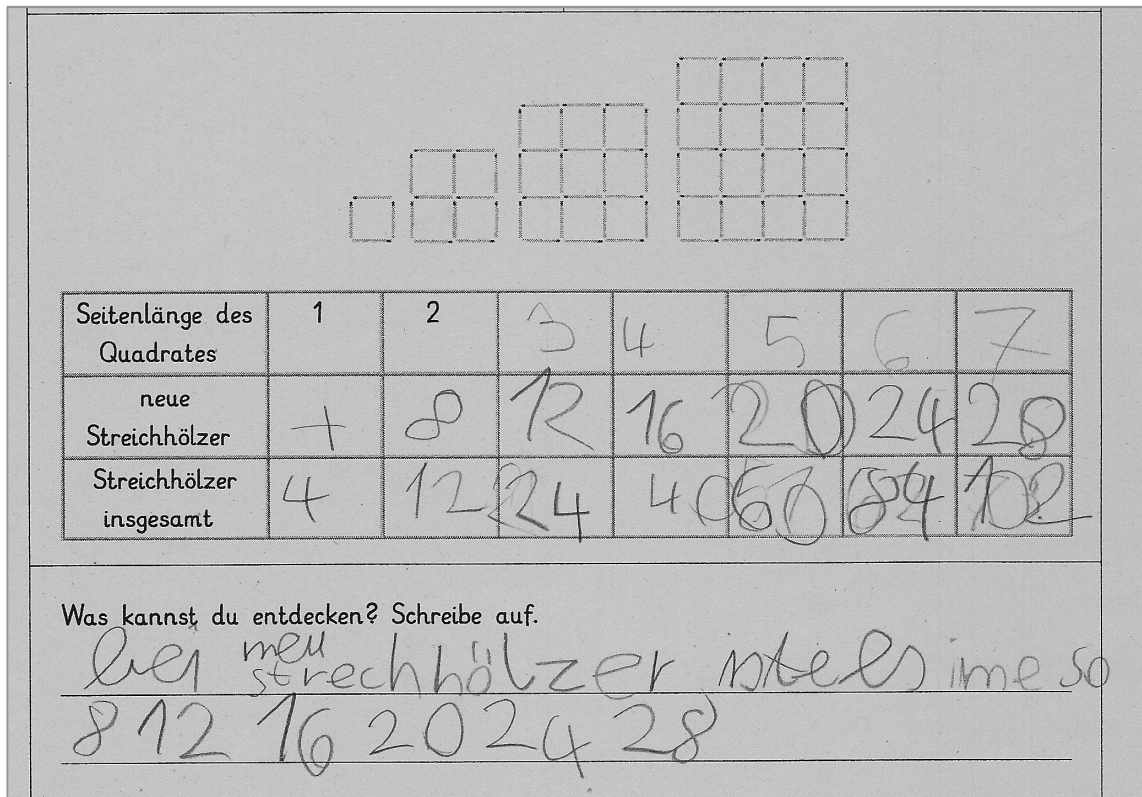 Seitenlänge des Quadrates 1 2 3 4 5 6 7
neue Streichhölzer + 8 12 16 20 24 28
Streichhölzer insgesamt 4 12 24 40 60 84 102
Was kannst du entdecken? Schreibe auf.
bei neu strechhölzer ist els ime so
8 12 16 20 24 28